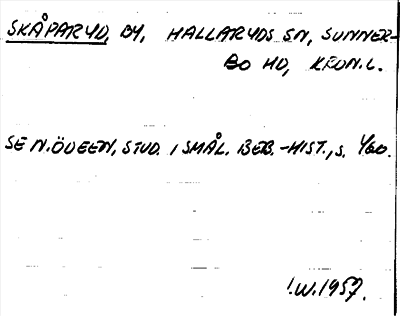 SKÅPARYD, BY, HALLARYDS SN, SUNNER-
BO HD, KRON.L.
SE N.ÖDEEN, STUD. I SMÅL. BEB.-HIST., s.
I.W.1957.